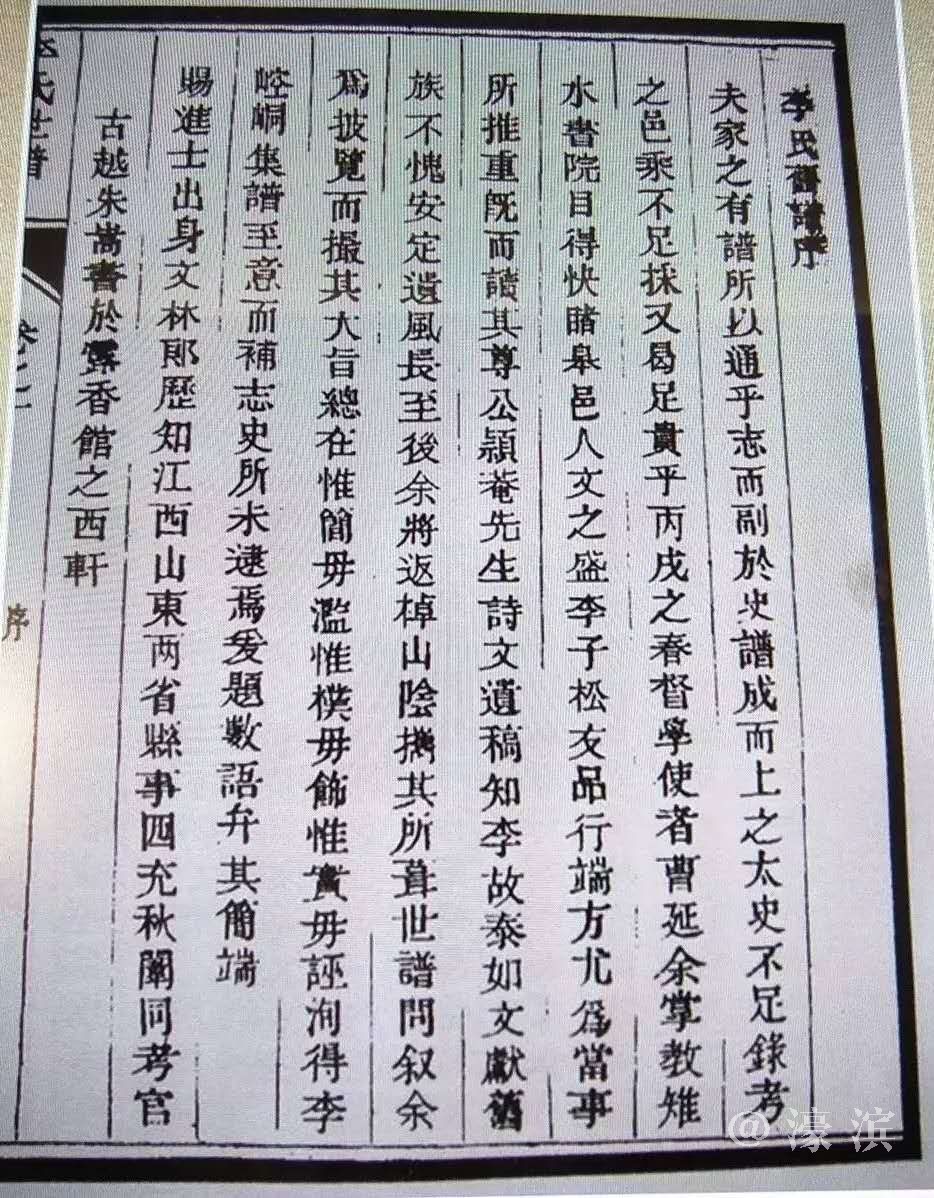 李氏舊譜序
夫家之有譜所以通乎志而副於史譜成而上之太史不足錄考
之邑乘不足採又曷足貴乎丙戌之春督學使者曹延余掌教雉
水書院目得快睹皋邑人文之盛李子松友品行端方尤爲當事
所推重既而讀其尊公穎菴先生詩文遺稿知李故泰如文獻舊
族不愧安定遺風長至後余將返棹山陰攜其所葺世譜問叙余
爲披覽而撮其大旨總在惟簡毋濫惟樸毋飾惟實毋誣洵得李
崆峒集譜至意而補志史所未逮焉爰題數語弁其簡端
賜進士出身文林郎歷知江西山東两省縣事四充秋闈同考官
古越朱嵩書於露香館之西軒
李氏世譜
卷之一
序
@濠滨